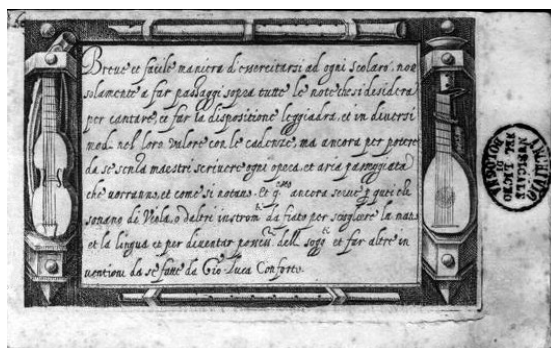 Breue et facile maniera d'essercitarsi ad ogni scolaro, non
solamente a far passaggi sopra tutte le note che si desidera
per cantare, et far la dispositione leggiadra, et in diuersi
modi nel loro ualore con le cadenze, ma ancora per potere
da se senza maestri scriuere ogni opera, et aria passeggiata
che uorranno, et come si notano. Et q.sto ancora serue p
sonano di Viola, o d'altri instrom.ti da fiato per sciogliere la mano
et la lingua et per diuentar et far altre in
uentioni da se fatte da Gio: Luca Conforto.
ARCHIVIO
MUSICALE
DI